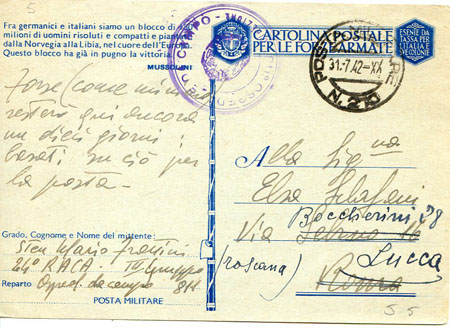 5
Fra germanici e italiani siamo un blocco di
milioni di uomini risoluti e compatti e pianta
dalla Norvegia alla Libia, nel cuore dell'Euro
Questo blocco ha già in pugno la vittoria
MUSSOLINI
CARTOLINA POSTALE
PER LE FORZE ARMATE
ESENTE DA
TASSA PER
L'ITALIA E
VECIONE
CAMPO
POSTA MILITARE
31.7.42-XX
N. 210
Forse (come minimo)
resterò qui ancora
un dieci giorni:
basati su ciò per
la posta -
Alla Sig.na
Elsa
Boccherini 28
Via
(toscana) Lucca
Roma
Grado, Cognome e Nome del mittente:
Mario
24° R.A.C.A. Gruppo
Reparto Osped. da campo 811
POSTA MILITARE
5 5